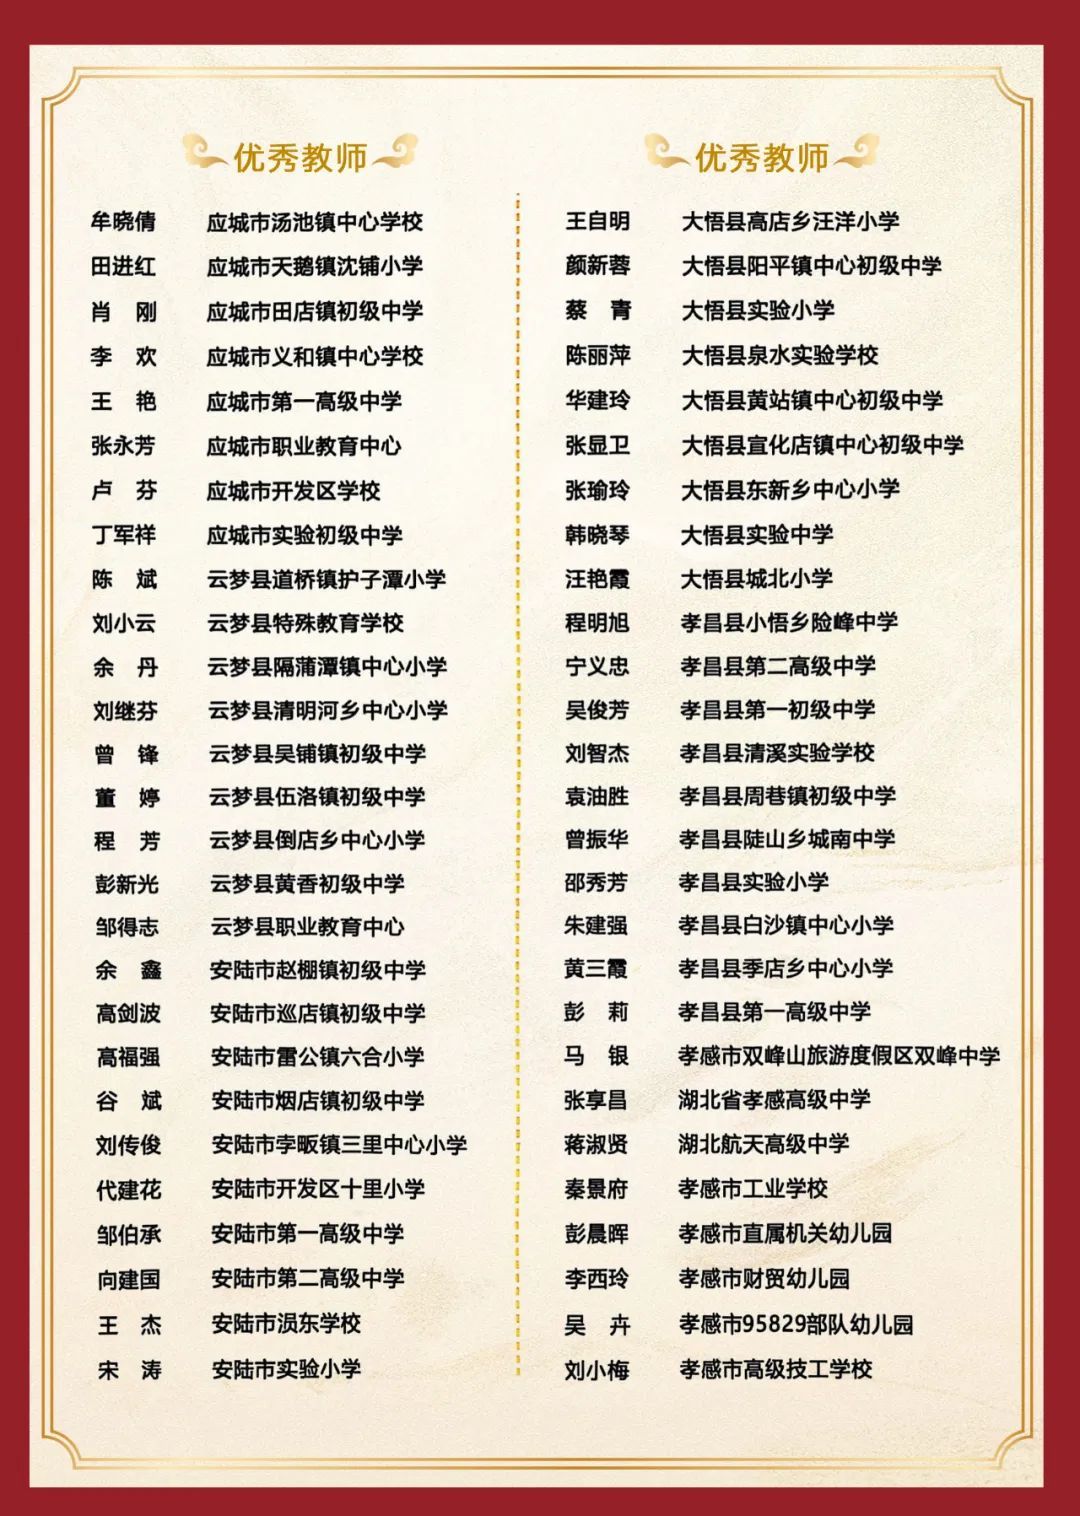 优秀教师
牟晓倩 应城市汤池镇中心学校
田进红 应城市天鹅镇沈铺小学
肖刚 应城市田店镇初级中学
李欢 应城市义和镇中心学校
王艳 应城市第一高级中学
张永芳 应城市职业教育中心
卢芬 应城市开发区学校
丁军祥 应城市实验初级中学
陈斌 云梦县道桥镇护子潭小学
刘小云 云梦县特殊教育学校
余丹 云梦县隔蒲潭镇中心小学
刘继芬 云梦县清明河乡中心小学
曾锋 云梦县吴铺镇初级中学
董婷 云梦县伍洛镇初级中学
程芳 云梦县倒店乡中心小学
彭新光 云梦县黄香初级中学
邹得志 云梦县职业教育中心
余鑫 安陆市赵棚镇初级中学
高剑波 安陆市巡店镇初级中学
高福强 安陆市雷公镇六合小学
谷斌 安陆市烟店镇初级中学
刘传俊 安陆市孛畈镇三里中心小学
代建花 安陆市开发区十里小学
邹伯承 安陆市第一高级中学
向建国 安陆市第二高级中学
王杰 安陆市涢东学校
宋涛 安陆市实验小学
优秀教师
王自明 大悟县高店乡汪洋小学
颜新蓉 大悟县阳平镇中心初级中学
蔡青 大悟县实验小学
陈丽萍 大悟县泉水实验学校
华建玲 大悟县黄站镇中心初级中学
张显卫 大悟县宣化店镇中心初级中学
张瑜玲 大悟县东新乡中心小学
韩晓琴 大悟县实验中学
汪艳霞 大悟县城北小学
程明旭 孝昌县小悟乡险峰中学
宁义忠 孝昌县第二高级中学
吴俊芳 孝昌县第一初级中学
刘智杰 孝昌县清溪实验学校
袁油胜 孝昌县周巷镇初级中学
曾振华 孝昌县陡山乡城南中学
邵秀芳 孝昌县实验小学
朱建强 孝昌县白沙镇中心小学
黄三霞 孝昌县季店乡中心小学
彭莉 孝昌县第一高级中学
马银 孝感市双峰山旅游度假区双峰中学
张享昌 湖北省孝感高级中学
蒋淑贤 湖北航天高级中学
秦景府 孝感市工业学校
彭晨晖 孝感市直属机关幼儿园
李西玲 孝感市财贸幼儿园
吴卉 孝感市95829部队幼儿园
刘小梅 孝感市高级技工学校